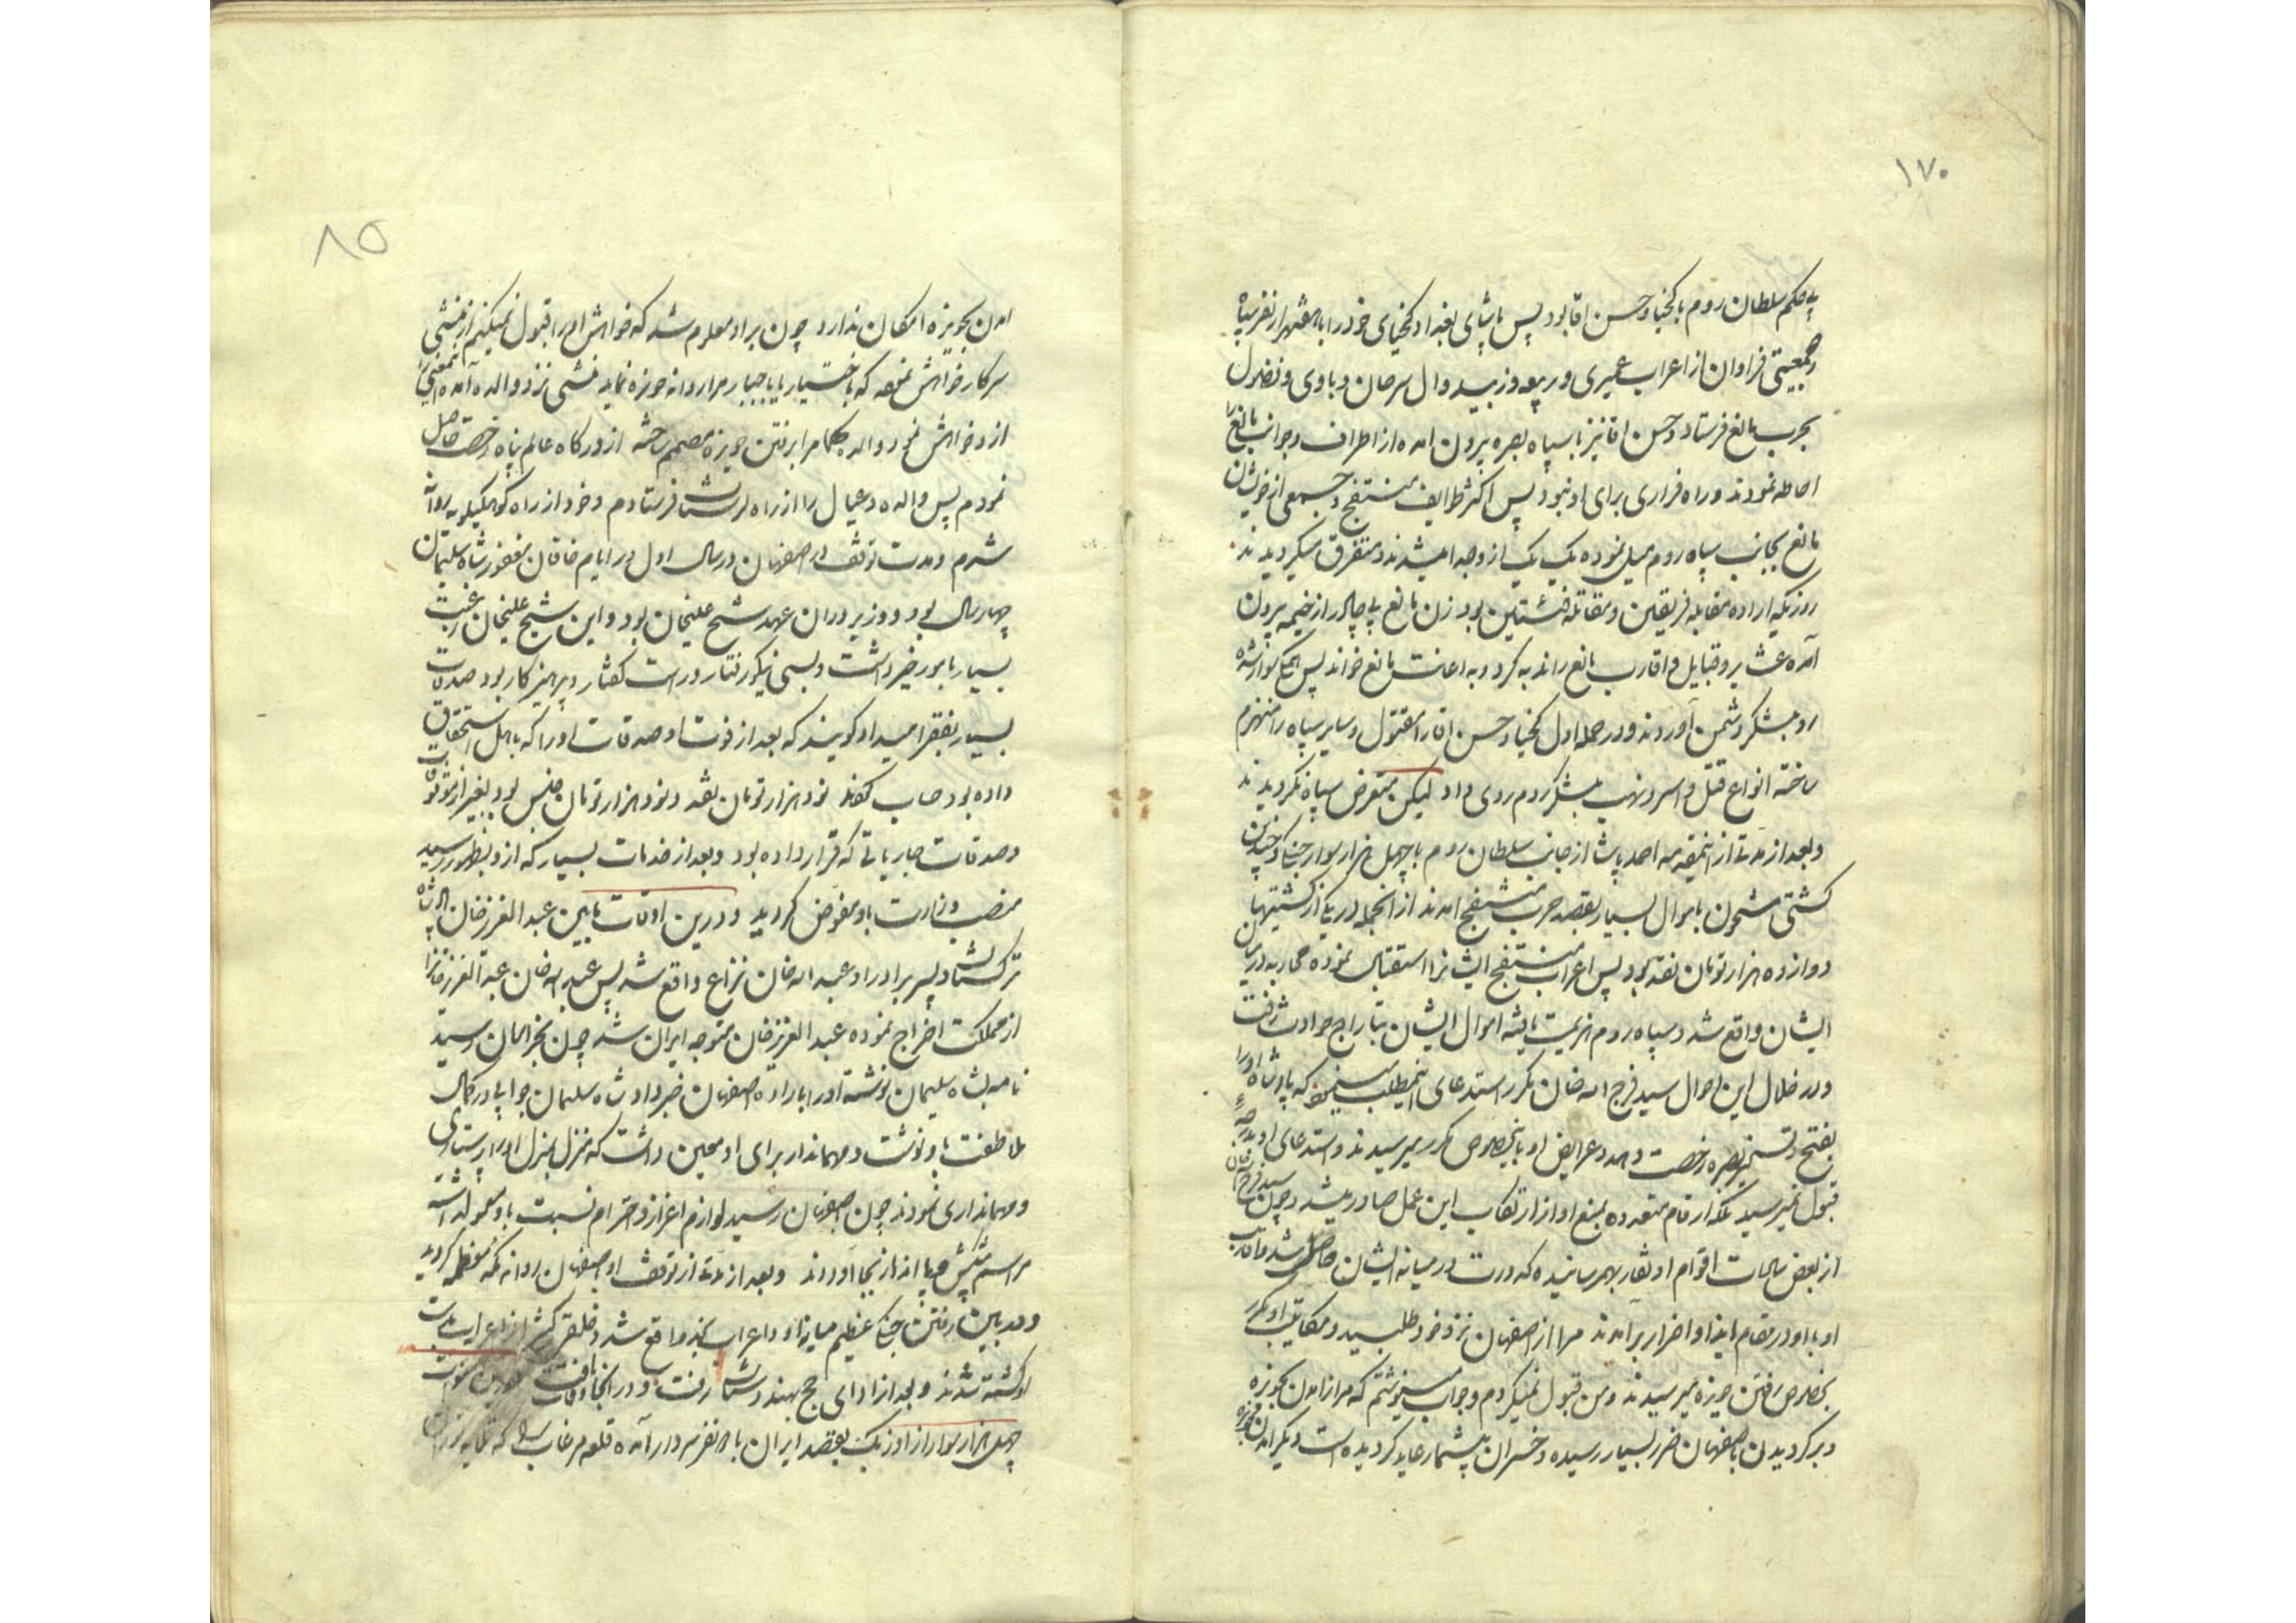 ۱۷۰
بی حکم سلطان روم با کخیا و حسن اقا بود پس پاشای بغداد کخیای خود را با هفتهزار نفر سپاه
و جمعیتی فراوان از اعراب عمیری و ربیعه و زبید و ال سرحان و باوی و فضول
بحرب مانع فرستاد و حسن اقا نیز با سپاه بصره بیرون امده از اطراف و جوانب مانع را
احاطه نمودند و راه فراری برای او نبود پس اکثر طوایف منتفج و جمعی از خویشان
مانع بجانب سپاه روم میل نموده یک یک ازو جدا میشدند و متفرق میگردیدند
روزیکه اراده مقابله فریقین و مقاتله فئتین بود زن مانع بی چادر از خیمه بیرون
آمده عشایر و قبایل و اقارب مانع را ندبه کرد و به اعانت مانع خواند پس همگی سوار شده
رو بلشکر دشمن آوردند و در حمله اول کخیا و حسن اقا را مقتول و سایر سپاه را منهزم
ساخته انواع قتل و اسر و نهب بلشکر روم روی داد لیکن متعرض سپاه نگردیدند
و بعد از مدتی از اینمقدمه احمد پاشا از جانب سلطان روم با چهل هزار سوار جنگی و چندین
کشتی مشحون باموال بسیار بقصد حرب منتفج امدند از انجمله در یکی از کشتیها
دوازده هزار تومان نقد بود پس اعراب منتفج ایشانرا استقبال نموده محاربه در میان
ایشان واقع شد و سپاه روم هزیمت یافته اموال ایشان بتاراج حوادث رفت
و در خلال این احوال سید فرج اله خان مکرر استدعای اینمطلب مینمود که پادشاه او را
بفتح و تسخیر بصره رخصت دهد و عرایض او باینخصوص مکرر میرسیدند و استدعای او بدرجهٔ
قبول نمیرسید بلکه ارقام متعدده بمنع او از ارتکاب این عمل صادر میشد و چون سید فرج اله خان
از بعض سالهات اقوام او نقار بهمرسانیده کدورت در میانه ایشان حاصل شد و اقارب
او با او در مقام ایذا و اضرار برامدند مرا از اصفهان نزد خود طلبید و مکاتیب او مکرر
بخصوص رفتن حویزه میرسیدند و من قبول نمیکردم و جواب مینوشتم که مرا از امدن بحویزه
و برگردیدن باصفهان ضرر بسیار رسیده و خسران بیشمار عاید گردیده است دیگر امدن بحویزه
۸۵
امدن بحویزه امکان ندارد چون بر او معلوم شد که خواهش او را قبول نمیکنم از منشی
سرکار خواهش نموده که باختیار یا باجبار مرا روانه حویزه نماید منشی نزد والده آمده اینمعنی را
ازو خواهش نمود والده حکما مرا برفتن حویزه مصمم ساخته از درگاه عالم پناه رخصت حاصل
نمودم پس والده و عیال را از راه لرستان فرستادم و خود از راه کوهکیلویه روانه
شدم و مدت توقف در اصفهان در سال اول در ایام خاقان مغفور شاه سلیمان
چهار سال بود و وزیر دوران عهد شیخ علیخان بود و این شیخ علیخان رغبت
بسیار بامور خیر داشت و بسی نیکو رفتار و راست گفتار و پرهیزکار بود صدقات
بسیار بفقرا میداد گویند که بعد از فوت او صدقات او را که باهل استحقاق
داده بود حساب کردند نود هزار تومان نقد و نود هزار تومان جنس بود بغیر از موقوفات
و صدقات جاریاتی که قرار داده بود و بعد از خدمات بسیار که ازو بظهور رسید
منصب وزارت باو مفوض گردید و درین اوقات مابین عبد العزیز خان پادشاه
ترکستان و پسر برادر او عبد اله خان نزاع واقع شد پس عبد اله خان عبد العزیز خانرا
از مملکت اخراج نموده عبد العزیز خان متوجه ایران شد چون بخراسان رسید
نامه بشاه سلیمان نوشته او را باراده اصفهان خبر داد شاه سلیمان جوابی در کمال
ملاطفت باو نوشت و مهماندار برای او معین داشت که منزل بمنزل او را پرستاری
و مهمانداری نمودند چون باصفهان رسید لوازم اعزاز و احترام نسبت باو معمول داشته
مراسم پیشکش و پا انداز بجا آوردند و بعد از مدتی از توقف او باصفهان روانه مکه معظمه گردید
و در بین رفتن جنگ عظیم میانه او و اعراب بادیه واقع شد و خلق کثیر از اعراب بدست
او کشته شدند و بعد از ادای حج بهندوستان رفت و در انجا وفات یافت
چهل هزار سوار از اوزبک بقصد ایران با نفر سردار آمده قلعه مرغاب